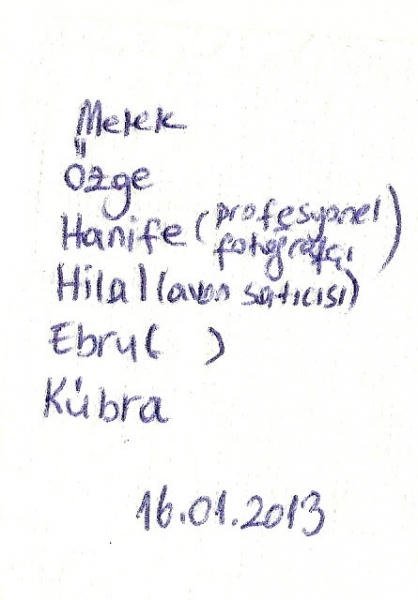 Melek
Özge
Hanife (profesyonel
fotoğrafçı)
Hilal (avon satıcısı)
Ebru ( )
Kübra
16.01.2013